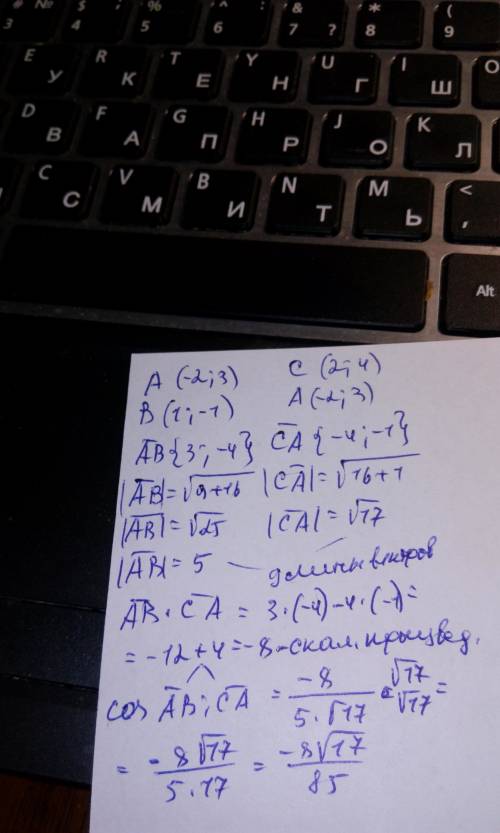 # № $ ; % ^ : & * (
3 4 5 6 7 ? 8 9
E R T Y U I O
У К Е Н Г Ш
D F G H J K
В А П Р О Л
C V B N M <
С М И Т Ь ,
Alt
A (-2; 3) C (2; 4)
B (1; -1) A (-2; 3)
A̅B̅ {3; -4} C̅A̅ {-4; -1}
|A̅B̅| = √9+16 |C̅A̅| = √16+1
|A̅B̅| = √25 |C̅A̅| = √17
|A̅B̅| = 5 — длины векторов
A̅B̅ · C̅A̅ = 3·(-4)-4·(-1)=
= -12+4=-8-скал. произвед.
cos A̅B̅; C̅A̅ = -8/(5·√17) · √17/√17 =
= -8√17/(5·17) = -8√17/85